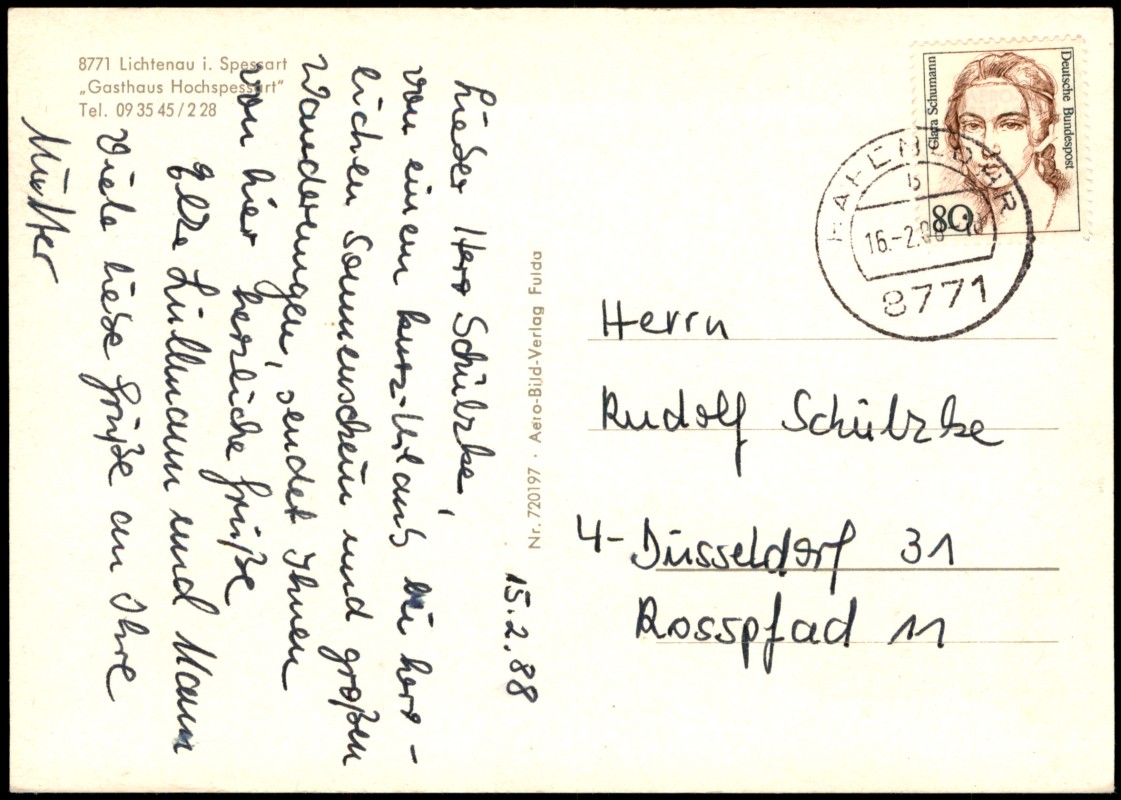 8771 Lichtenau i. Spessart
„Gasthaus Hochspessart“
Tel. 09 35 45 / 2 28
15.2.88
Lieber Herr Schülzke,
von einem Kurz-Urlaub bei herr-
lichen Sonnenschein und großen
Wanderungen, sendet Ihnen
von hier herzliche Grüße
Elke Lüllmann und Mann
Viele liebe Grüße an Ihre
Mutter
Nr. 720197 · Aero-Bild-Verlag Fulda
Clara Schumann
Deutsche Bundespost
80
b
16.-2.88
8771
Herrn
Rudolf Schülzke
4- Düsseldorf 31
Rosspfad 11